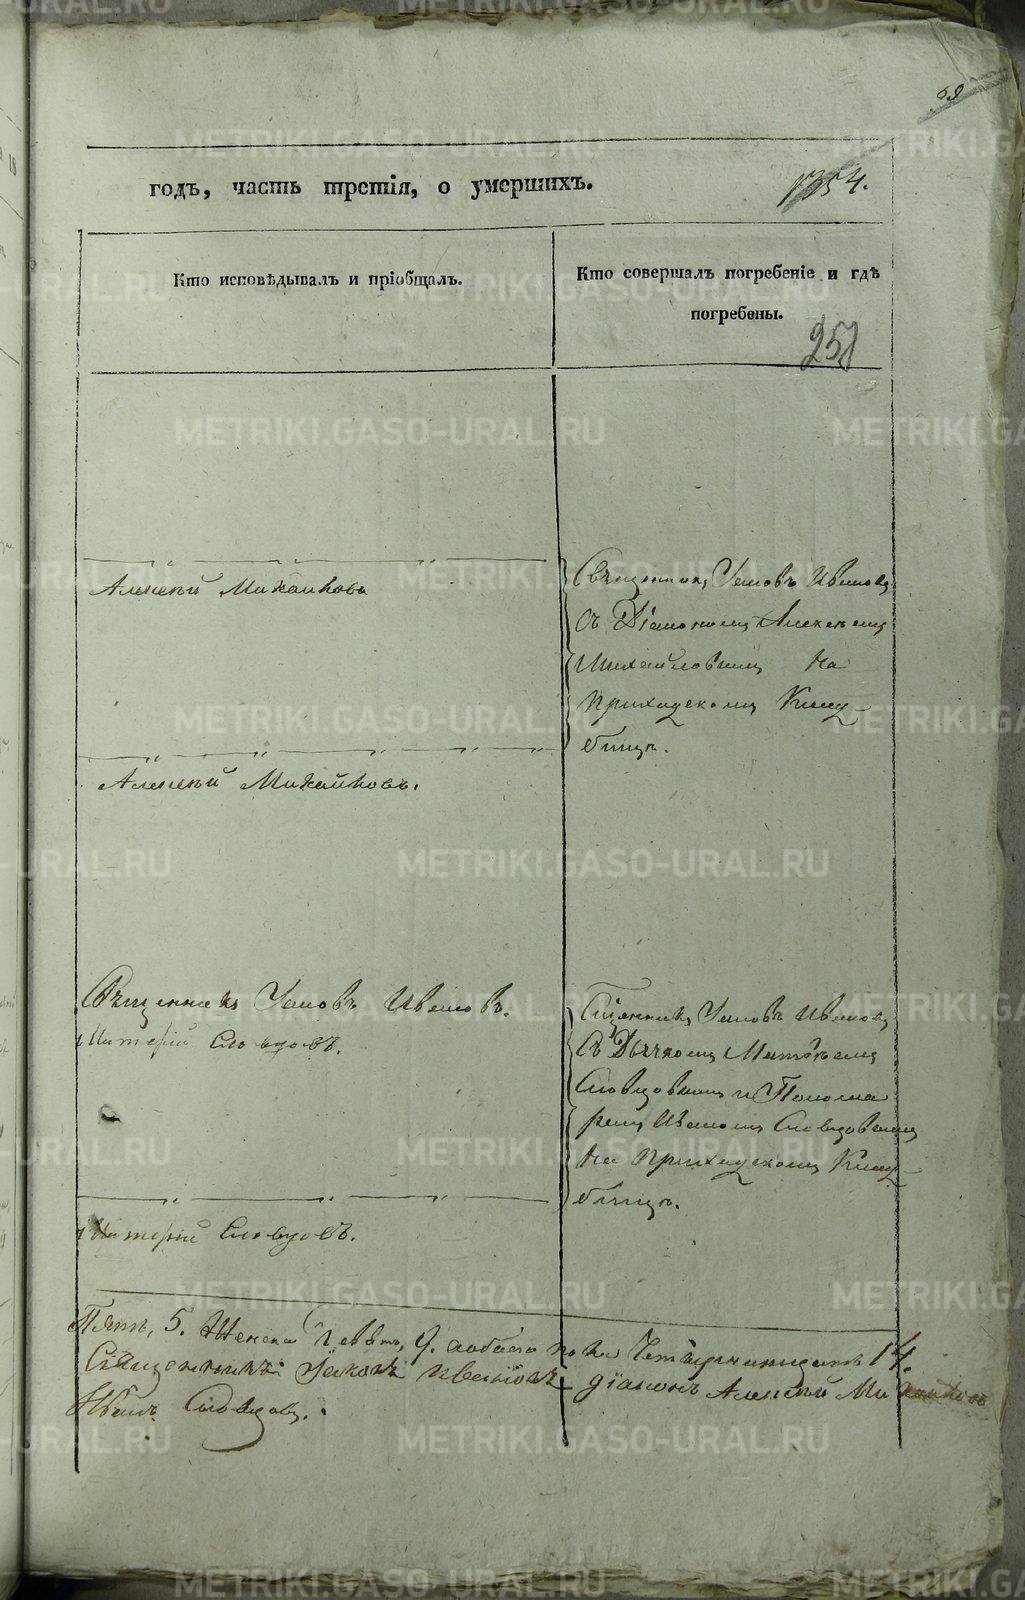 69
годъ, часть третія, о умершихъ.
1354.
Кто исповѣдывалъ и пріобщалъ.
Кто совершалъ погребеніе и гдѣ
погребены.
251
Алексѣй Михайловъ
Священникъ Іаковъ Ивановъ
Съ Діакономъ Алексѣемъ
Михайловымъ на
приходскомъ Клад
бищѣ.
Алексѣй Михайловъ.
Священникъ Іаковъ Ивановъ.
Словцовъ.
Сщенникъ Іаковъ Ивановъ
Съ Дьячкомъ Матѳѣемъ
Словцовымъ и Понома
ремъ Иваномъ Словцовымъ
на приходскомъ Клад
бищѣ.
Словцовъ.
5. Женска 9. обоего пола Четырнадцать 14.
Священникъ Іаковъ Ивановъ діаконъ Алексѣй Михайловъ
Словцовъ.
METRIKI.GASO-URAL.RU